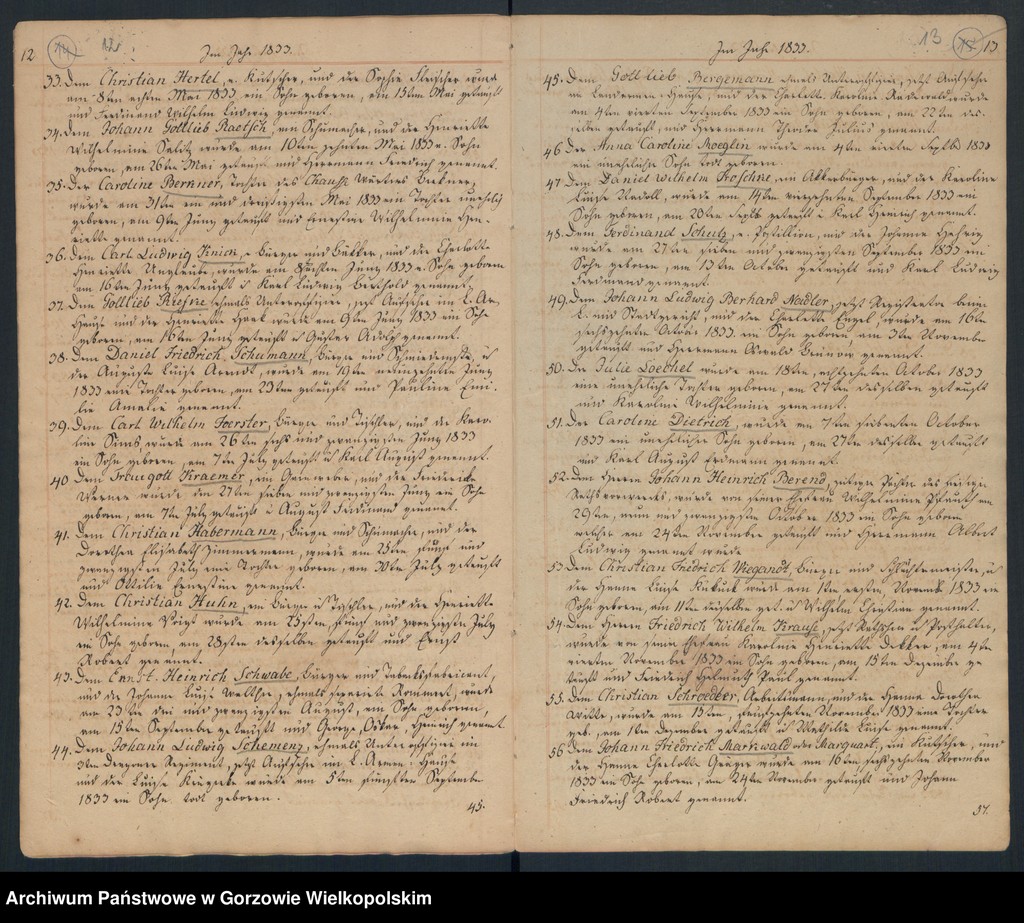 12 14 12
Im Jahr 1833.
33. Dem Christian Hertel, e. Kutscher, und der Sophie Fleischer wurde
am 8ten achten Mai 1833 ein Sohn geboren, am 15ten Mai getauft
und Ferdinand Wilhelm Ludwig genannt.
34. Dem Johann Gottlieb Raetsch, ein Schumacher, und der Henriette
Wilhelmine wurde am 10ten zehnten Mai 1833 e. Sohn
geboren, am 26ten Mai getauft und Herrmann Friedrich genannt.
35. Der Caroline Berkner, Tochter des Chaussé Wärters Berkner,
wurde am 31ten ein und dreißigsten Mai 1833 ein Tochter unehelich
geboren, am 9ten Juny getauft und Ernestine Wilhelmine Hen-
riette genannt.
36. Dem Carl Ludwig Kinich, e. Bürger und Bäkker, und der Charlotte
Henriette wurde am 8 achten Juny 1833 e. Sohn geboren
am 16ten Juny getauft u Karl Ludwig Berthold genannt.
37. Dem Gottlieb Riesne, ehmals Unteroffizier, jetzt Aufseher im L. Ar.
Hause und der Henriette wurde am 9ten Juny 1833 ein Sohn
geboren, am 16ten Juny getauft u Gustav Adolph genannt.
38. Dem Daniel Friedrich Schumann, Bürger und Schmiedemstr. u
der Auguste Luise Arendt, wurde am 19ten neunzehnten Juny
1833 eine Tochter geboren, am 23ten getauft und Pauline Emi-
lie Amalie genannt.
39. Dem Carl Wilhelm Foerster, Bürger und Tischler, und der Karo-
line wurde am 26ten sechs und zwanzigsten Juny 1833
ein Sohn geboren, am 7ten July getauft u Karl August genannt.
40 Dem Traugott Kraemer, ein und der Friederike
Werner wurde den 27ten sieben und zwanzigsten Juny ein Sohn
geboren, am 7ten July getauft u August Ferdinand genannt.
41. Dem Christian Habermann, Bürger und Schumacher, und der
Dorothea Elisabeth Zimmermann, wurde am 25ten fünf und
zwanzigsten July eine Tochter geboren, am July getauft
und Ottilie Ernestine genannt.
42. Dem Christian Huhn, ein Bürger u Tischler, und der Henriette
Wilhelmine Voigt wurde am 25ten fünf und zwanzigsten July
ein Sohn geboren, am 28sten desselben getauft und Ernst
Robert genannt.
43. Dem Ernst Heinrich Schwabe, Bürger und Tabaksfabricant,
und der Johanne Luise Walther, ehmals separirte Rommert, wurde
am 23ten drei und zwanzigsten August, ein Sohn geboren,
am 15ten September getauft und George, Oskar, Heinrich genannt
44. Dem Johann Ludwig Schemenz, ehmals Unteroffizier im
3ten Dragoner Regiment, jetzt Aufseher im L. Armen-Hause
und der Luise wurde am 5ten fünften September
1833 ein Sohn todt geboren.
45.
13 15 13
Im Jahr 1833.
45. Dem Gottlieb Bergemann ehmals Unteroffizier, jetzt Aufseher
im Landarmen-Hause, und der Charlotte Karoline wurde
am 4ten vierten September 1833 ein Sohn geboren, am 22ten des-
selben getauft, und Herrmann Theodor Julius genannt.
46 Der Anna Caroline Moeglin wurde am 4ten vierten Septb 1833
ein unehelicher Sohn todt geboren.
47 Dem Daniel Wilhelm Froschke, ein Akkerbürger, und der Karoline
Luise wurde am 14ten vierzehnten September 1833 ein
Sohn geboren, am Septb getauft u Karl Heinrich genannt.
48. Dem Ferdinand Schulz, e. Postillion, und der Johanne
wurde am 27ten sieben und zwanzigsten September 1833 ein
Sohn geboren, am 13ten October getauft und Karl Ludwig
Ferdinand genannt.
49. Dem Johann Ludwig Berhard Nadler, jetzt Registrator beim
L. und Stadtgericht, und der Charlotte Engel, wurde am 16ten
sechszehnten October 1833. ein Sohn geboren, am 3ten November
getauft und Herrmann Oswald genannt.
50. Der Julie Loechel wurde am 18ten, achtzehnten October 1833
eine uneheliche Tochter geboren, am 27ten desselben getauft
und Karoline Wilhelmine genannt.
51. Der Caroline Dietrich, wurde am 7ten siebenten October
1833 ein unehelicher Sohn geboren, am 27ten desselben getauft
und Karl August Erdmann genannt.
52. Dem Herrn Johann Heinrich Berend, Pächter des
Rathsvorwerks, wurde von seiner Ehefrau Wilhelmine am
29ten, neun und zwanzigsten October 1833 ein Sohn geboren
welcher am 24ten November getauft und Herrmann Albert
Ludwig genannt wurde
53. Dem Christian Friedrich Wiegandt, Bürger und Schlächtermeister, u
der Hanne Luise Kukuck wurde am 1ten ersten, Novemb 1833 ein
Sohn geboren, am 11ten desselben get. u Wilhelm Christian genannt.
54. Dem Herrn Friedrich Wilhelm Krause, jetzt u Posthalter,
wurde von seiner Ehefrau Karoline Henriette Dekker, am 4ten
vierten November 1833 ein Sohn geboren, am 15ten Dezember ge-
tauft und Friedrich Helmuth Paul genannt.
55. Dem Christian Schroedter, Arbeitsmann, und der Hanne Dorothee
wurde am 15ten, fünfzehnten November 1833 eine Tochter
geb., am 1ten Dezember getauft u Mathilde Luise genannt.
56. Dem Johann Friedrich Markwald oder Marquart, ein Kutscher, und
der Hanne Charlotte wurde am 16ten sechszehnten November
1833 ein Sohn geboren, am 24ten November getauft und Johann
Friedrich Robert genannt.
57.
Archiwum Państwowe w Gorzowie Wielkopolskim